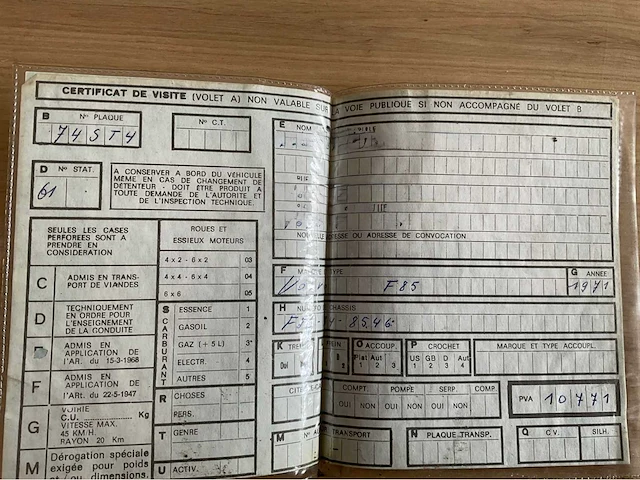 CERTIFICAT DE VISITE (VOLET A) NON VALABLE SUR LA VOIE PUBLIQUE SI NON ACCOMPAGNÉ DU VOLET B
B No PLAQUE
74ST4
No C.T.
D No STAT.
61
A CONSERVER A BORD DU VÉHICULE
MÊME EN CAS DE CHANGEMENT DE
DÉTENTEUR - DOIT ÊTRE PRODUIT A
TOUTE DEMANDE DE L'AUTORITÉ ET
DE L'INSPECTION TECHNIQUE.
E NOM
ADRESSE OU ADRESSE DE CONVOCATION
F TYPE
F85
G ANNÉE
1971
H CHASSIS
8546
SEULES LES CASES
PERFORÉES SONT A
PRENDRE EN
CONSIDÉRATION
C ADMIS EN TRANS-
PORT DE VIANDES
D TECHNIQUEMENT
EN ORDRE POUR
L'ENSEIGNEMENT
DE LA CONDUITE
ADMIS EN
APPLICATION DE
l'ARt. du 15-3-1968
F ADMIS EN
APPLICATION DE
l'ARt. du 22-5-1947
G VOIRIE
C.U. Kg
VITESSE MAX.
45 KM/H.
RAYON 20 Km
M Dérogation spéciale
exigée pour poids
et/ou dimensions.
ROUES ET
ESSIEUX MOTEURS
4 x 2 - 6 x 2 03
4 x 4 - 6 x 4 04
6 x 6 05
S CARBURANT
ESSENCE 1
GASOIL 2
GAZ (+ 5 L) 3*
ELECTR. 4
AUTRES 5
R CHOSES
PERS.
T GENRE
U ACTIV.
K
Oui
O ACCOUP.
Plat Aut
1 2 3
P CROCHET
US GB D Aut
1 2 3 4
MARQUE ET TYPE ACCOUPL.
COMPT. POMPE SERP. COMP.
OUI NON OUI NON OUI NON
PVA 10771
M TRANSPORT
N PLAQUE TRANSP.
Q C.V. SILH.